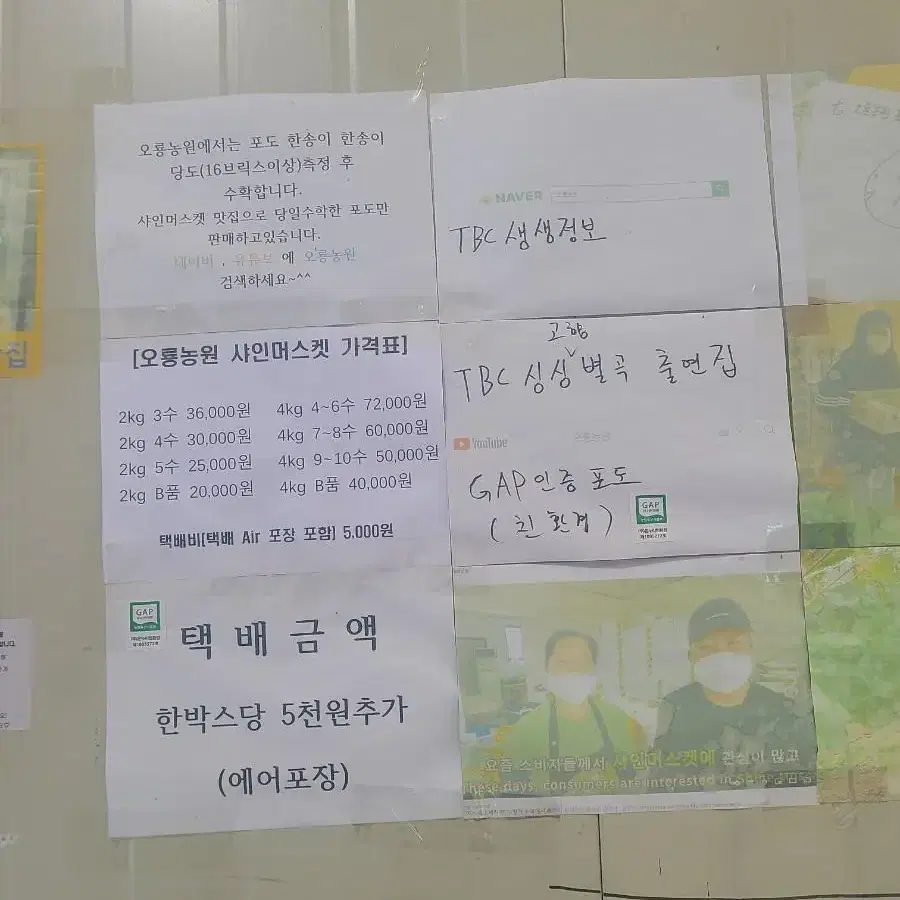 오룡농원에서는 포도 한송이 한송이
당도(16브릭스이상)측정 후
수확합니다.
샤인머스켓 맛집으로 당일수확한 포도만
판매하고있습니다.
네이버 , 유튜브 에 오룡농원
검색하세요~^^
NAVER
TBC 생생정보
[오룡농원 샤인머스켓 가격표]
2kg 3수 36,000원 4kg 4~6수 72,000원
2kg 4수 30,000원 4kg 7~8수 60,000원
2kg 5수 25,000원 4kg 9~10수 50,000원
2kg B품 20,000원 4kg B품 40,000원
택배비[택배 Air 포장 포함] 5.000원
고향
TBC 싱싱 별곡 출연집
YouTube 오룡농원
GAP 인증 포도
(친환경)
GAP
GAP
택배금액
한박스당 5천원추가
(에어포장)
요즘 소비자들께서 샤인머스켓에 관심이 많고
These days, consumers are interested in
집